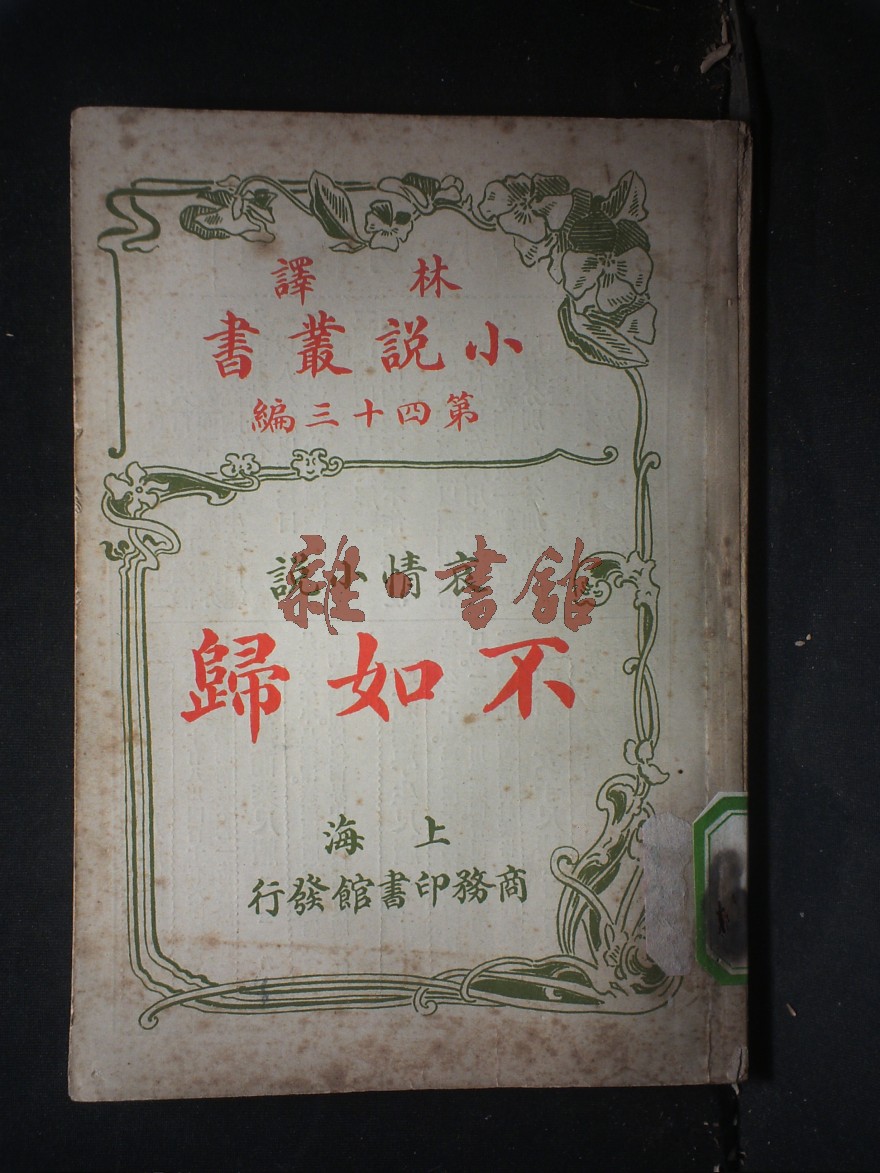 林譯
小說叢書
第四十三編
哀情小說
雜·書館
不如歸
上海
商務印書館發行